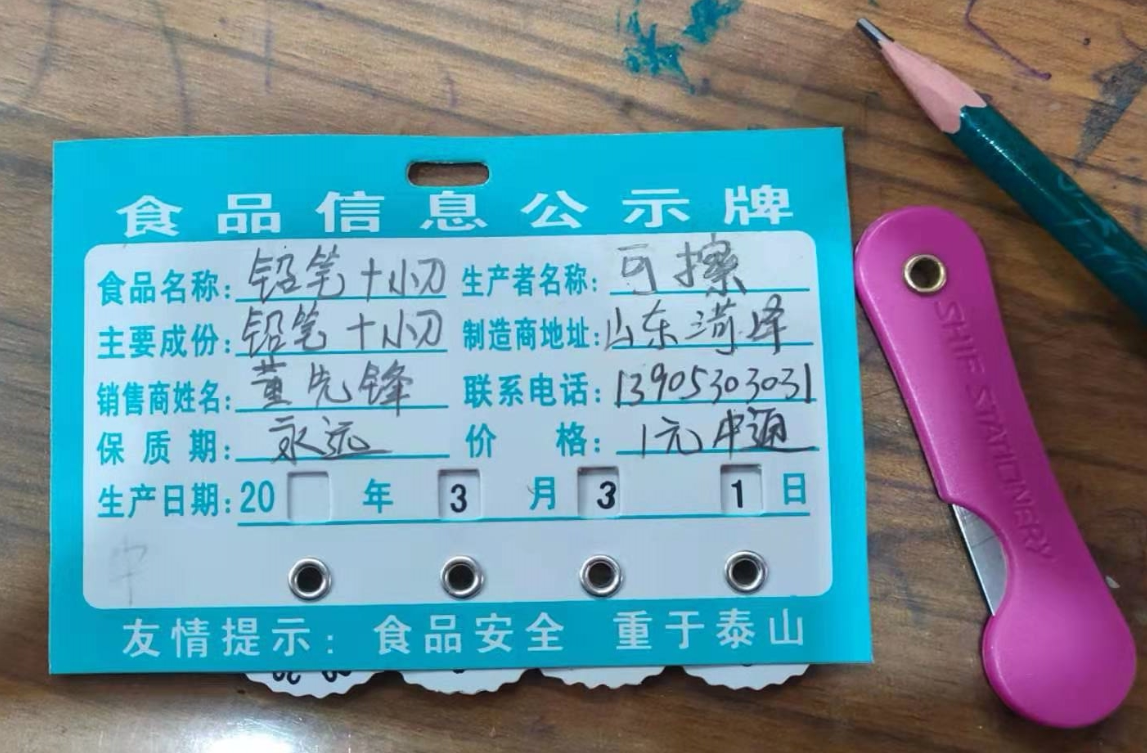 食品信息公示牌
食品名称：铅笔+小刀 生产者名称：可擦
主要成份：铅笔+小刀 制造商地址：山东菏泽
销售商姓名：董先锋 联系电话：13905303031
保质期：永远 价格：1元 申通
生产日期：20 年 3 月 3 1 日
友情提示：食品安全 重于泰山
SHIF STATIONERY